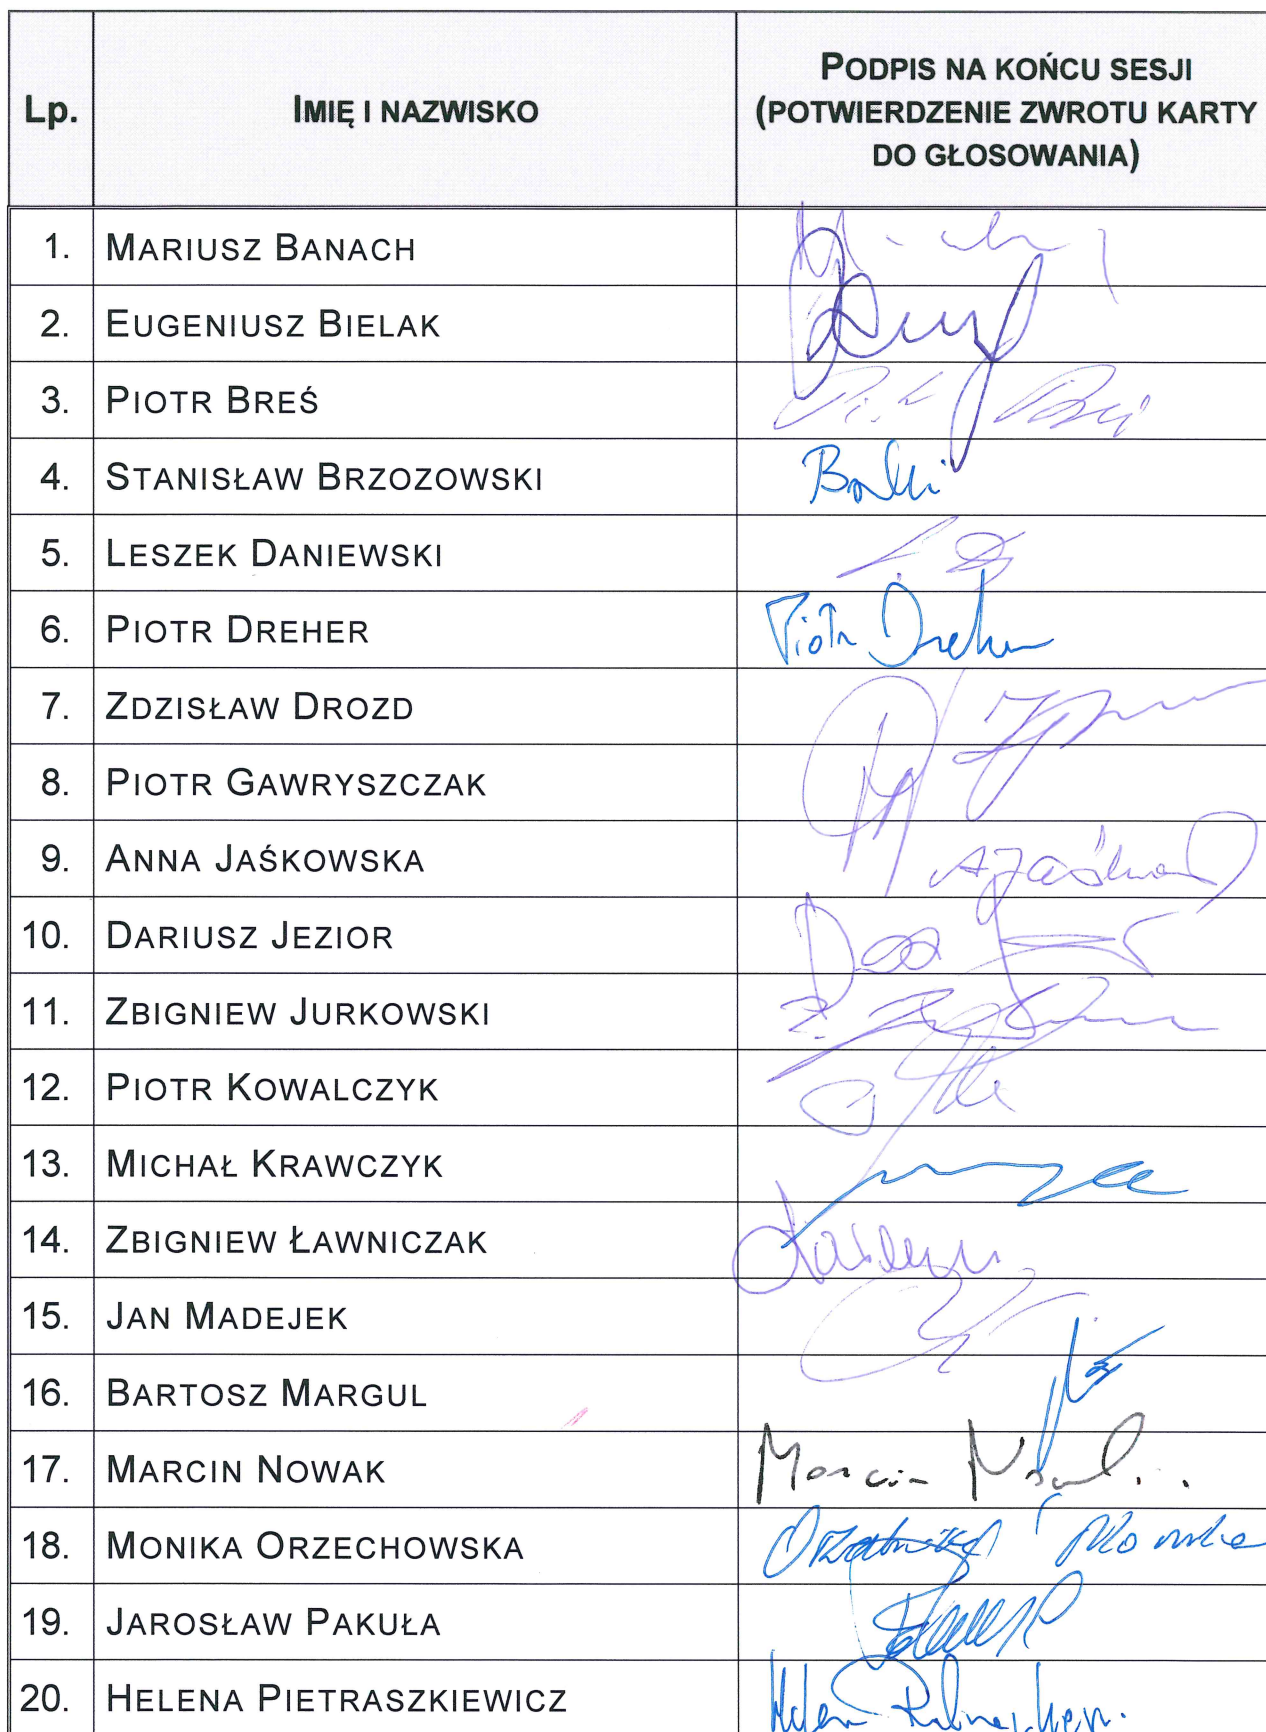 Lp.
IMIĘ I NAZWISKO
PODPIS NA KOŃCU SESJI
(POTWIERDZENIE ZWROTU KARTY
DO GŁOSOWANIA)
1. MARIUSZ BANACH
2. EUGENIUSZ BIELAK
3. PIOTR BREŚ
4. STANISŁAW BRZOZOWSKI
5. LESZEK DANIEWSKI
6. PIOTR DREHER Piotr Dreher
7. ZDZISŁAW DROZD
8. PIOTR GAWRYSZCZAK
9. ANNA JAŚKOWSKA
10. DARIUSZ JEZIOR
11. ZBIGNIEW JURKOWSKI
12. PIOTR KOWALCZYK
13. MICHAŁ KRAWCZYK
14. ZBIGNIEW ŁAWNICZAK
15. JAN MADEJEK
16. BARTOSZ MARGUL
17. MARCIN NOWAK Marcin Nowak
18. MONIKA ORZECHOWSKA
19. JAROSŁAW PAKUŁA
20. HELENA PIETRASZKIEWICZ Helena